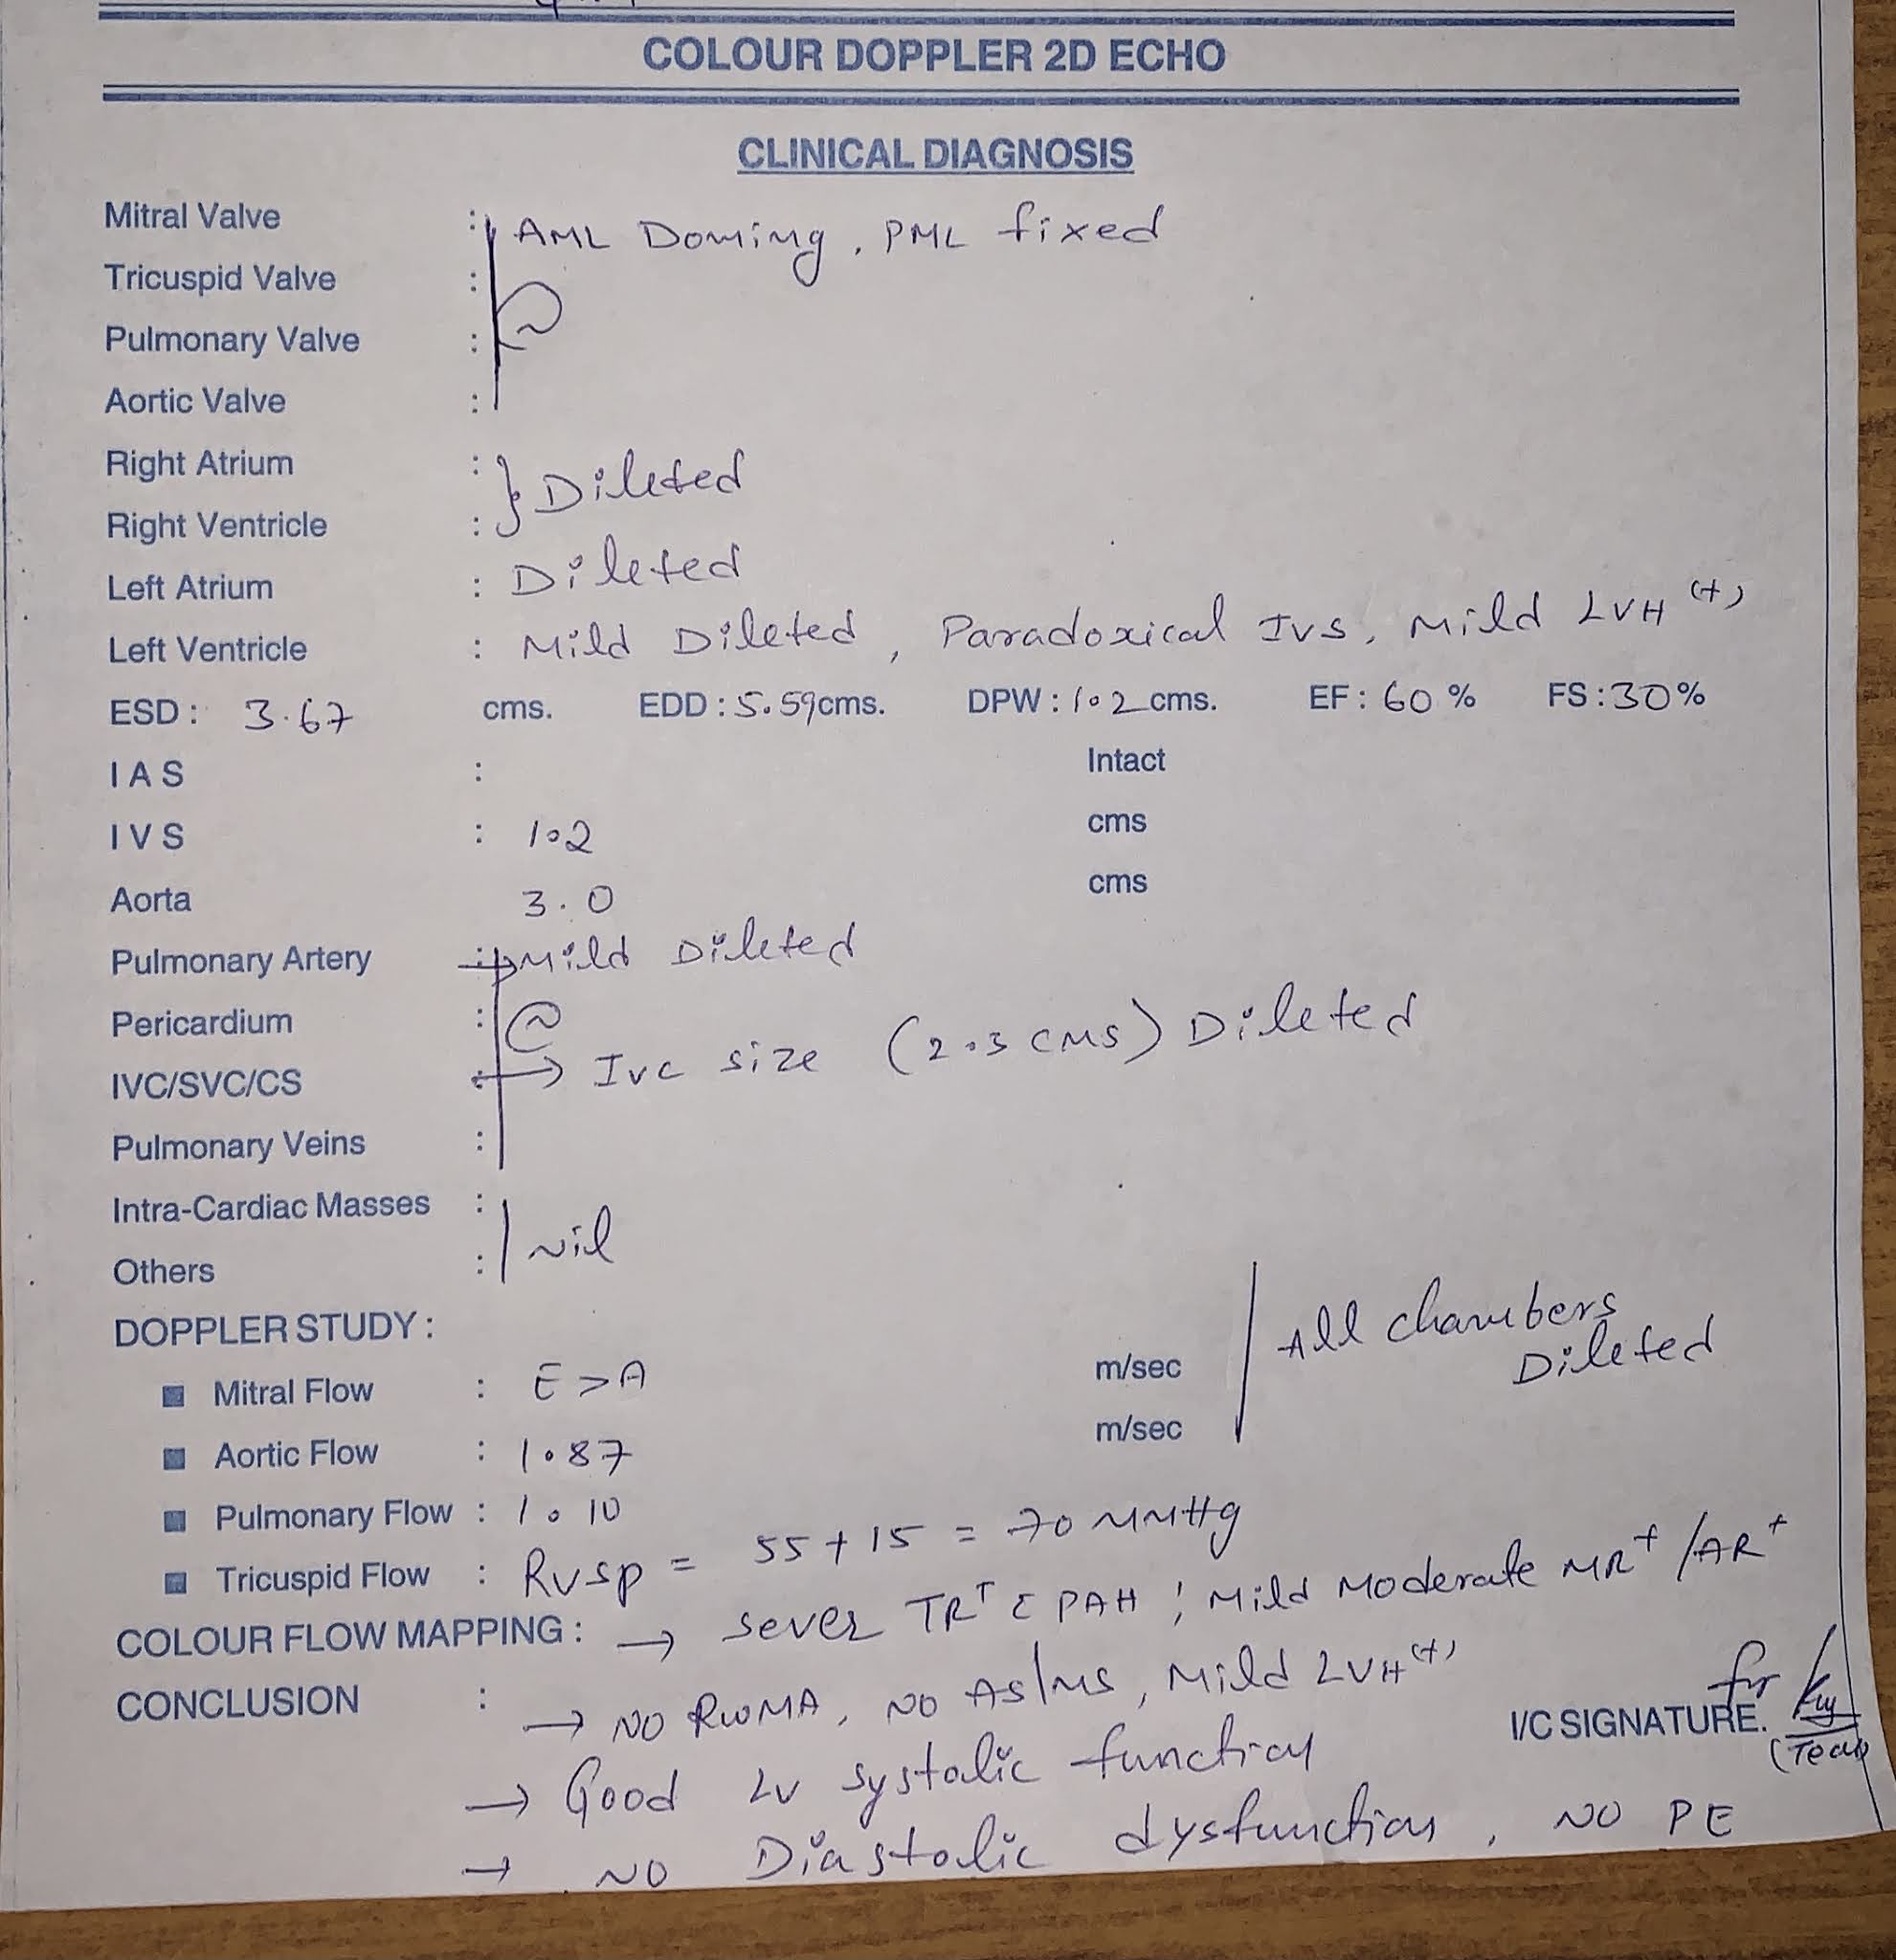 COLOUR DOPPLER 2D ECHO
CLINICAL DIAGNOSIS
Mitral Valve : AML Doming, PML fixed
Tricuspid Valve :
Pulmonary Valve :
Aortic Valve :
Right Atrium : } Dileted
Right Ventricle :
Left Atrium : Dileted
Left Ventricle : Mild Dileted, Paradoxical IVS, Mild LVH (+)
ESD : 3.67 cms. EDD : 5.59 cms. DPW : 1.2 cms. EF : 60 % FS : 30%
I A S : Intact
I V S : 1.2 cms
Aorta 3.0 cms
Pulmonary Artery : Mild Dileted
Pericardium :
IVC/SVC/CS → IVC size (2.3 cms) Dileted
Pulmonary Veins :
Intra-Cardiac Masses : Nil
Others :
DOPPLER STUDY : All chambers
Mitral Flow : E > A m/sec Dileted
Aortic Flow : 1.87 m/sec
Pulmonary Flow : 1.10
Tricuspid Flow : RVSP = 55 + 15 = 70 MMHg
COLOUR FLOW MAPPING : → Sever TR+ c PAH ; Mild Moderate MR+ / AR+
CONCLUSION : → NO RWMA, NO AS/MS, Mild LVH (+)
I/C SIGNATURE. for
→ Good LV Systolic function
→ NO Diastolic dysfunction, NO PE